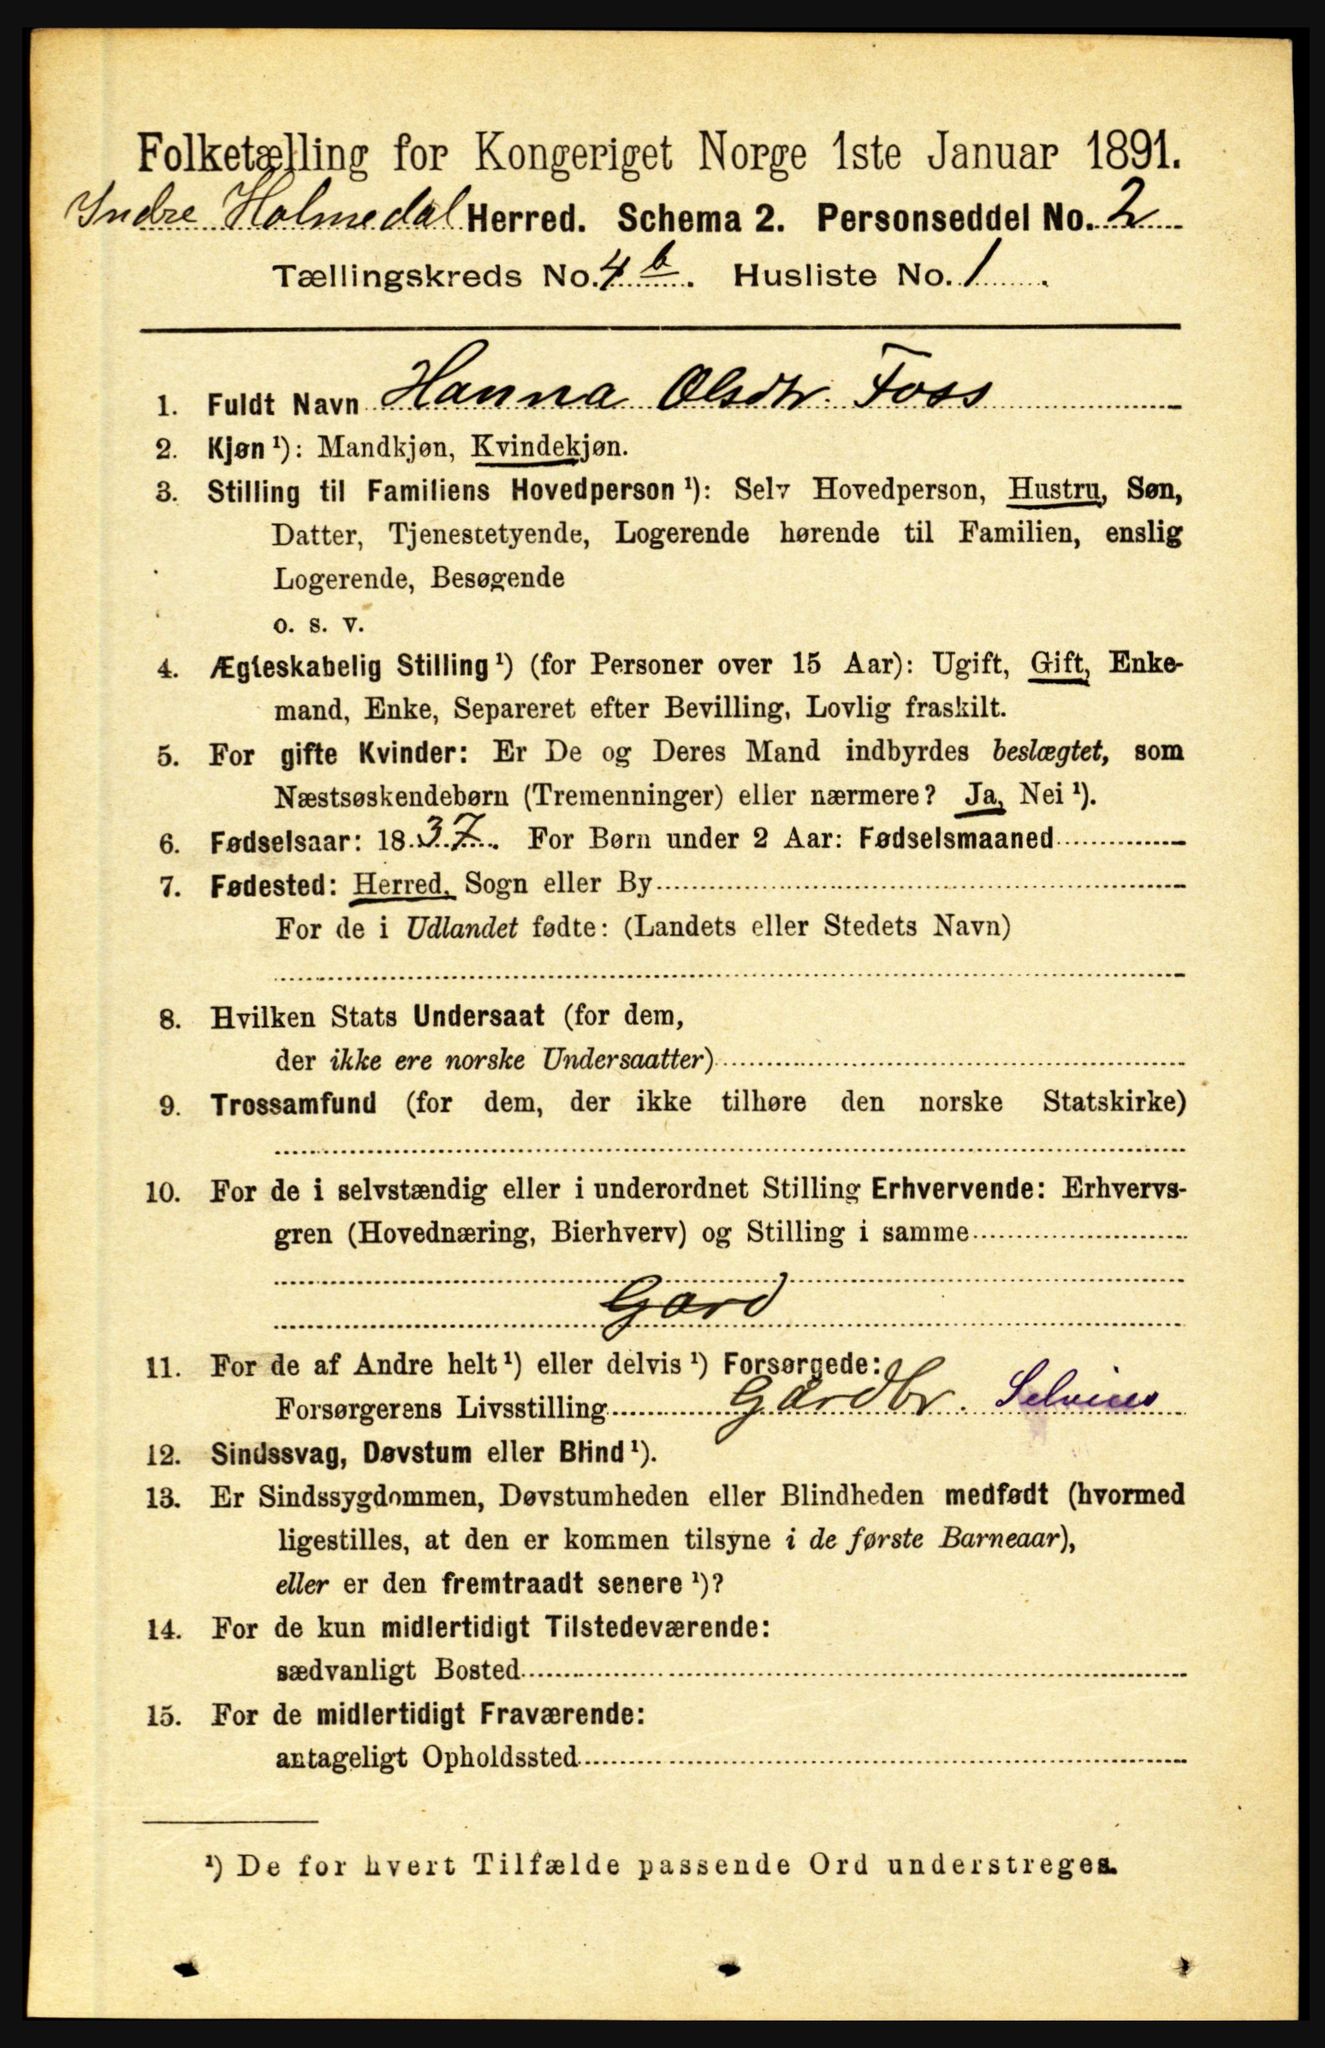 Folketælling for Kongeriget Norge 1ste Januar 1891.
Indre Holmedal Herred. Schema 2. Personseddel No. 2
Tællingskreds No. 4 b. Husliste No. 1.
1. Fuldt Navn Hanna Olsdtr. Foss
2. Kjøn ¹): Mandkjøn, Kvindekjøn.
3. Stilling til Familiens Hovedperson ¹): Selv Hovedperson, Hustru, Søn,
Datter, Tjenestetyende, Logerende hørende til Familien, enslig
Logerende, Besøgende
o. s. v.
4. Ægteskabelig Stilling ¹) (for Personer over 15 Aar): Ugift, Gift, Enke-
mand, Enke, Separeret efter Bevilling, Lovlig fraskilt.
5. For gifte Kvinder: Er De og Deres Mand indbyrdes beslægtet, som
Næstsøskendebørn (Tremenninger) eller nærmere? Ja, Nei ¹).
6. Fødselsaar: 1837. For Børn under 2 Aar: Fødselsmaaned
7. Fødested: Herred, Sogn eller By
For de i Udlandet fødte: (Landets eller Stedets Navn)
8. Hvilken Stats Undersaat (for dem,
der ikke ere norske Undersaatter)
9. Trossamfund (for dem, der ikke tilhøre den norske Statskirke)
10. For de i selvstændig eller i underordnet Stilling Erhvervende: Erhvervs-
gren (Hovednæring, Bierhverv) og Stilling i samme
Gard
11. For de af Andre helt ¹) eller delvis ¹) Forsørgede:
Forsørgerens Livsstilling Gardbr. Selveier
12. Sindssvag, Døvstum eller Blind ¹).
13. Er Sindssygdommen, Døvstumheden eller Blindheden medfødt (hvormed
ligestilles, at den er kommen tilsyne i de første Barneaar),
eller er den fremtraadt senere ¹)?
14. For de kun midlertidigt Tilstedeværende:
sædvanligt Bosted
15. For de midlertidigt Fraværende:
antageligt Opholdssted
¹) De for hvert Tilfælde passende Ord understreges.